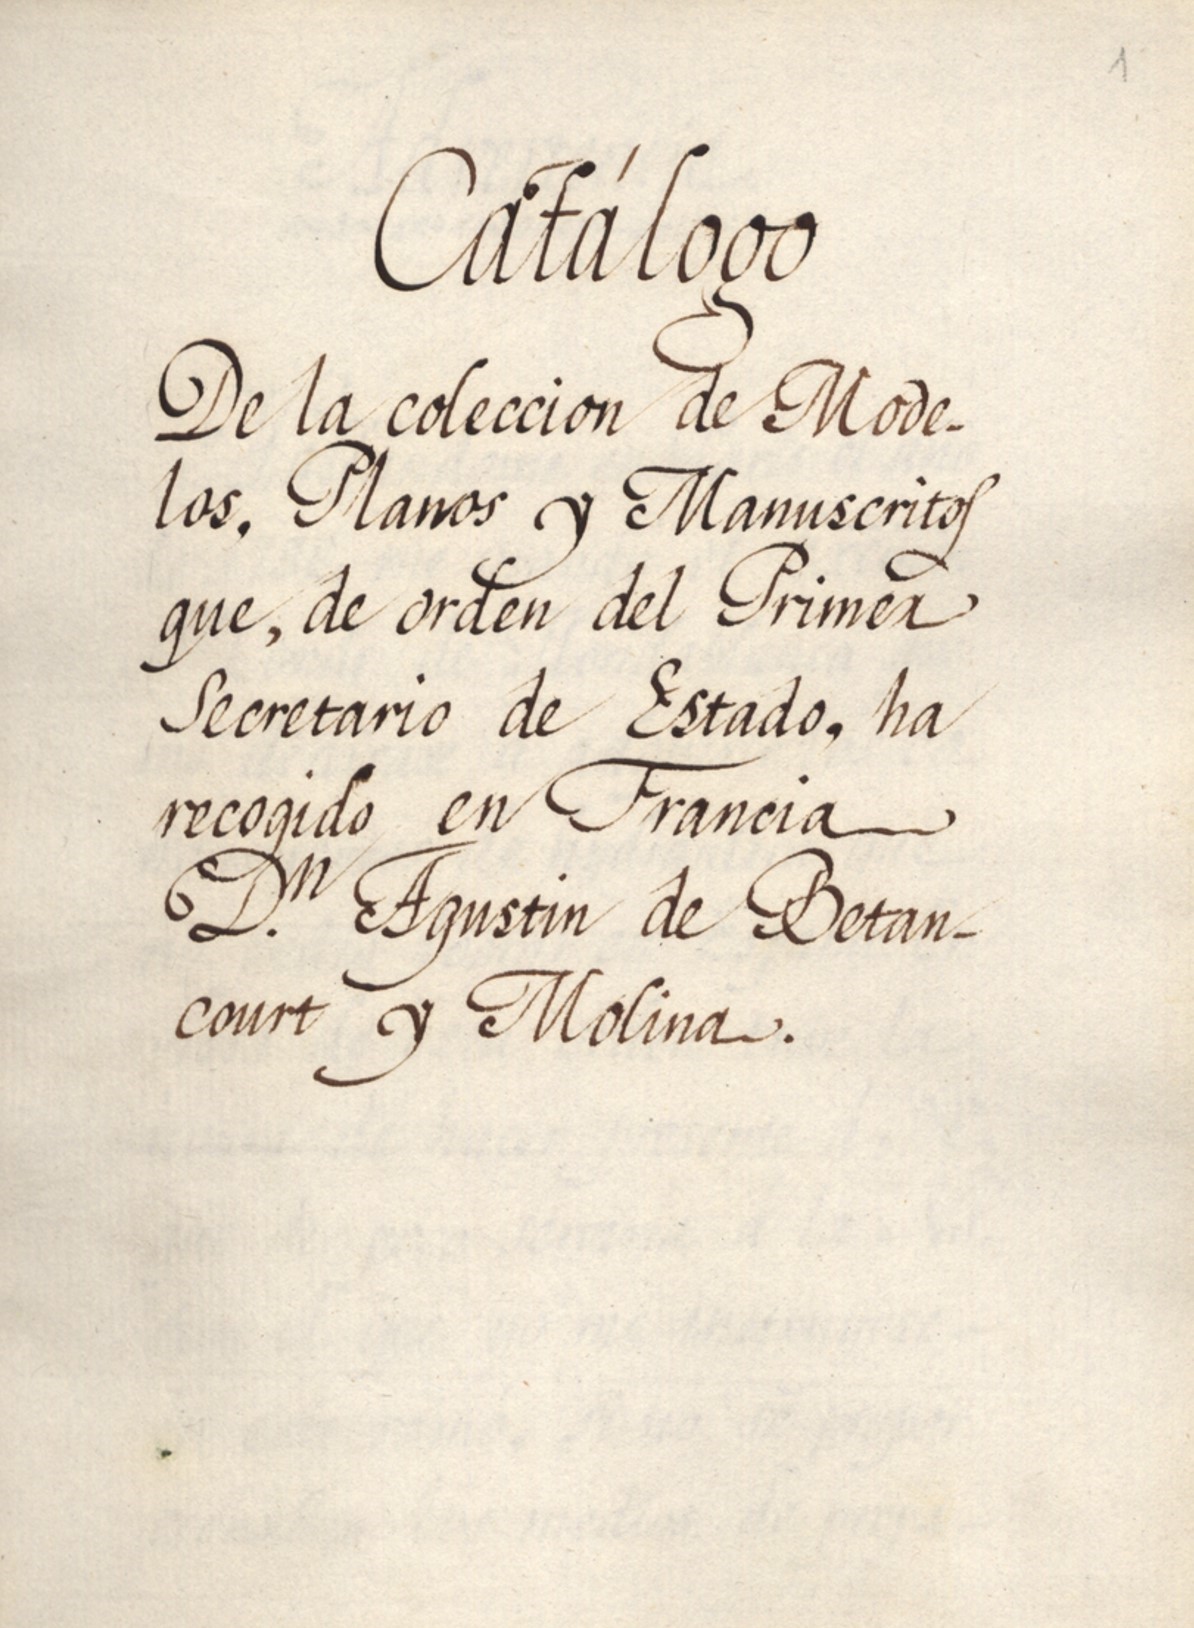 1
Catálogo
De la coleccion de Mode-
los, Planos y Manuscritos
que, de orden del Primer
Secretario de Estado, ha
recogido en Francia
D.n Agustin de Betan-
court y Molina.